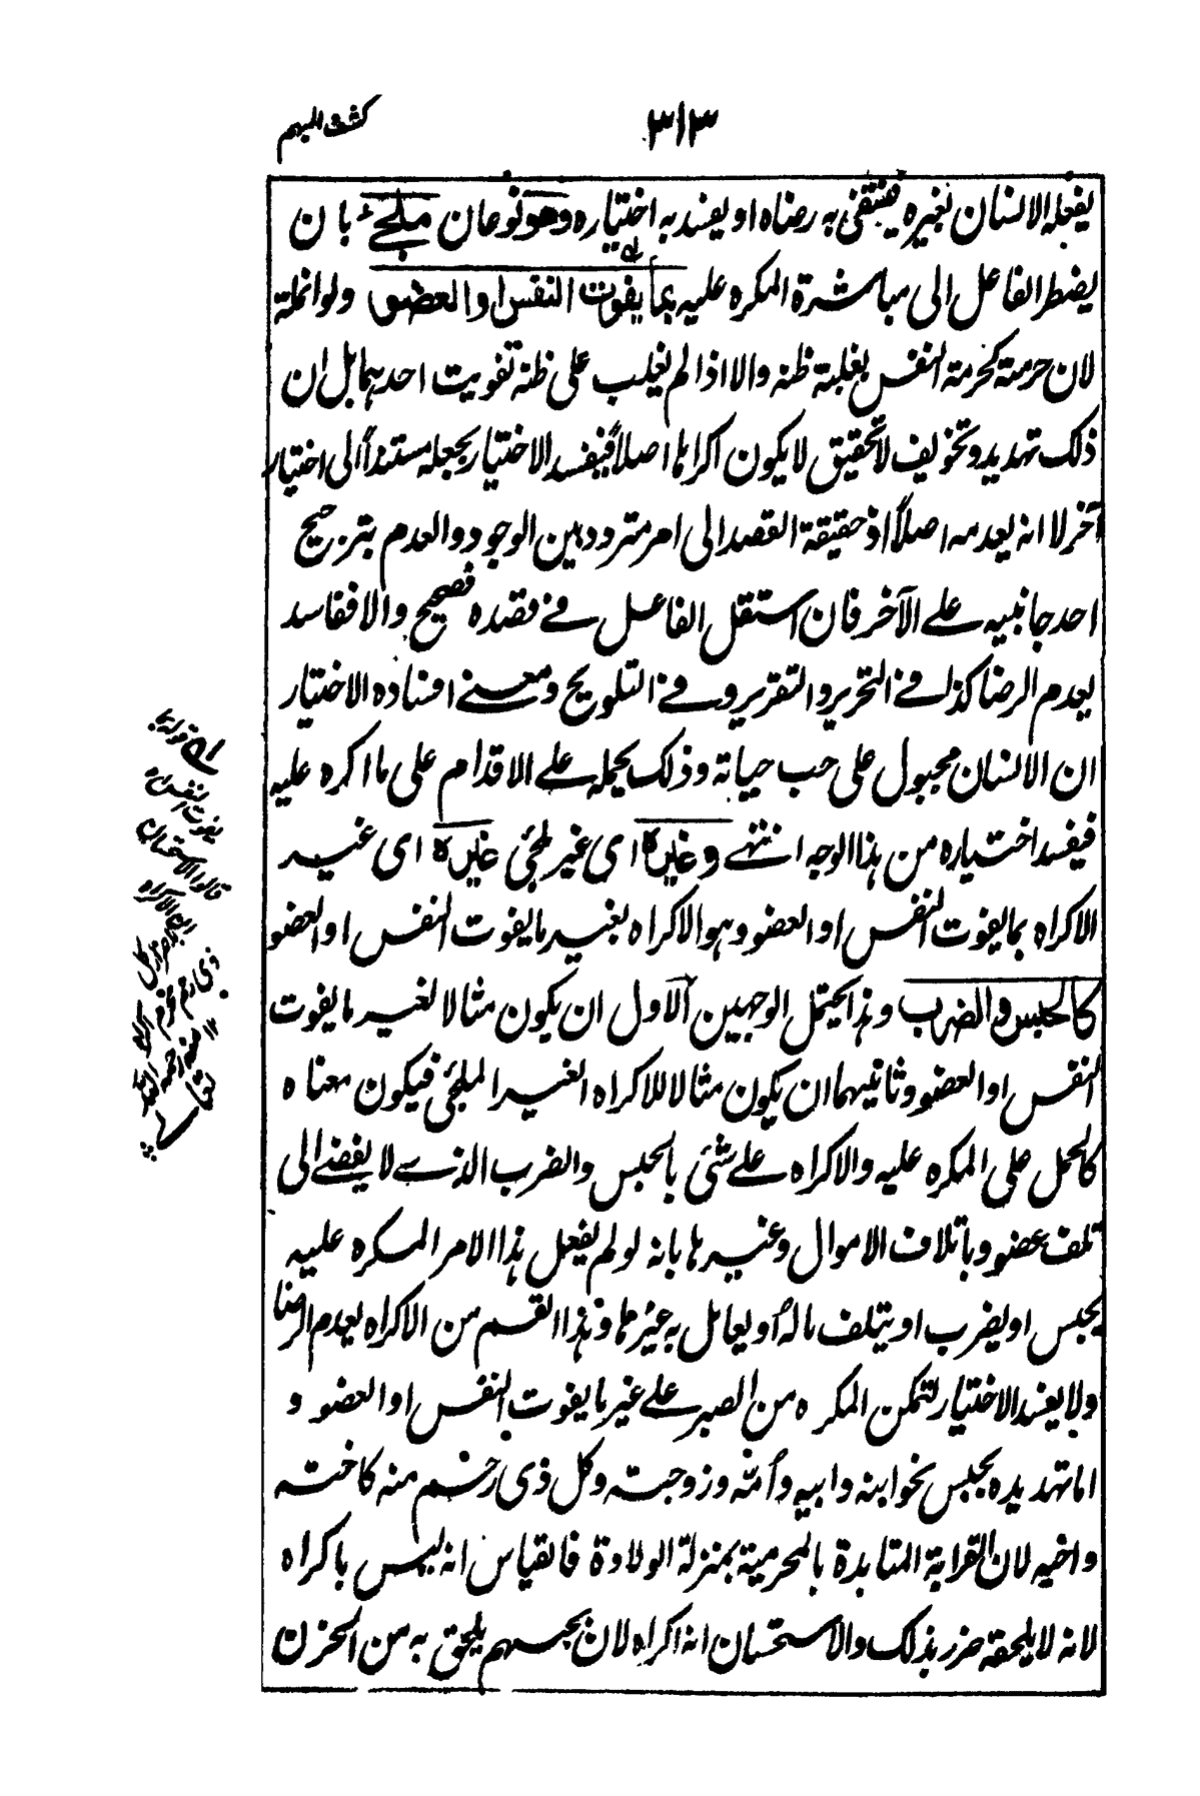 كشف المبهم
٣١٣
يفعله الانسان بغيره فينتفى به رضاه او يفسد به اختياره وهو نوعان ملجئ بان
يضطر الفاعل الى مباشرة المكره عليه بما يفوت النفس او العضو ولو انملة
لان حرمته كحرمة النفس بغلبة ظنه والا اذا لم يغلب على ظنه تفويت احدهما بل ان
ذلك تهديد وتخويف لا تحقيق لا يكون اكراها اصلا فيفسد الاختيار بجعله مستنداً الى اختيار
آخر لا انه يعدمه اصلاً اذ حقيقة القصد الى امر متردد بين الوجود والعدم بترجيح
احد جانبيه على الآخر فان استقل الفاعل فى قصده فصحيح والا ففاسد
يعدم الرضا كذا فى التحرير والتقرير وفى التلويح ومعنى افساده الاختيار
ان الانسان مجبول على حب حياته وذلك يحمله على الاقدام على ما اكره عليه
فيفسد اختياره من هذا الوجه انتهى وغيره اى غير ملجئ غيره اى غير
الاكراه بما يفوت النفس او العضو وهو الاكراه بغير ما يفوت النفس او العضو
كالحبس والضرب وهذا يحتمل الوجهين الاول ان يكون مثالا لغير ما يفوت
النفس او العضو وثانيهما ان يكون مثالا للاكراه الغير الملجئ فيكون معناه
كالحمل على المكره عليه والاكراه على شئ بالحبس والضرب الذى لا يفضى الى
تلف عضو وباتلاف الاموال وغيرها بانه لو لم يفعل هذا الامر المكره عليه
يحبس او يضرب او يتلف ماله او يعامل به غيرها وهذا القسم من الاكراه يعدم الرضا
ولا يفسد الاختيار لتمكن المكره من الصبر على غير ما يفوت النفس او العضو و
اما تهديده بحبس نحو ابنه وابيه وأمه وزوجته وكل ذى رحم منه كاخته
واخيه لان القرابة المتابدة بالمحرمية بمنزلة الولادة فالقياس انه ليس باكراه
لانه لا يلحقه ضرر بذلك والاستحسان انه اكراه لان بحبسهم يلحق به من الحزن
قوله بما
يفوت النفس
قالوا الاستحسان
ذى رحم محرم اكراه
١٢ منه رحمه الله
تعالى